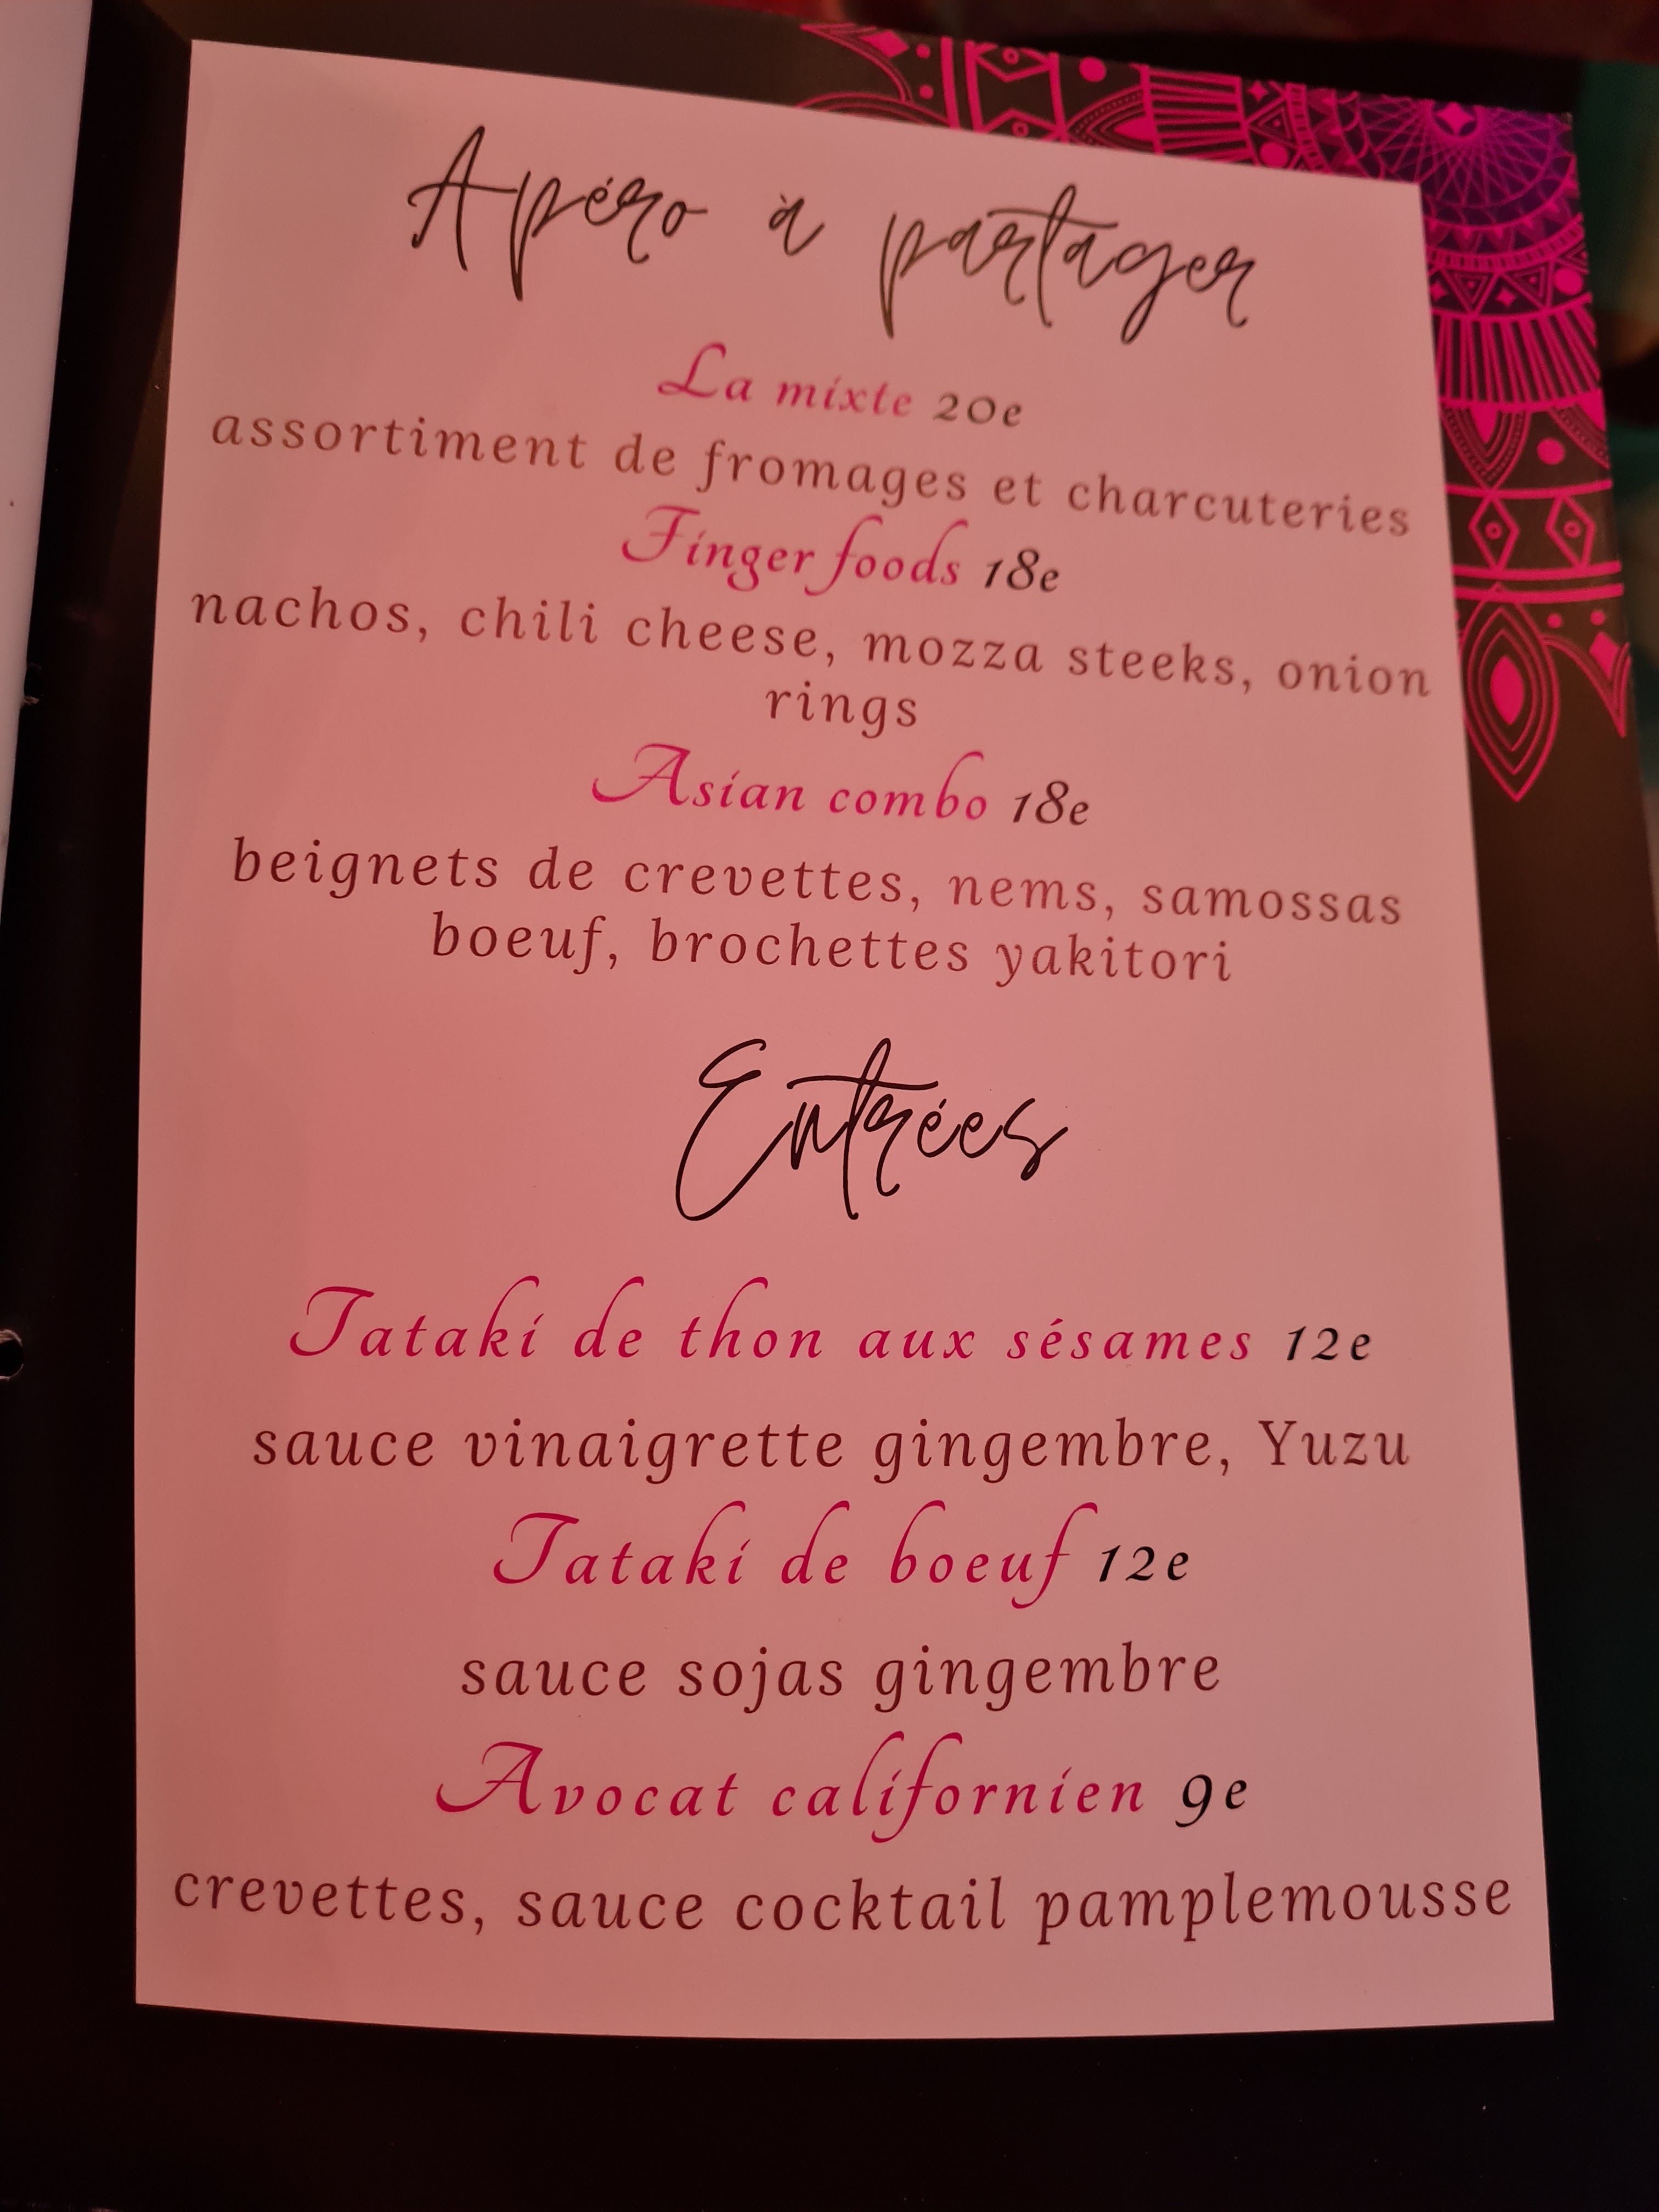 Apéro à partager
La mixte 20e
assortiment de fromages et charcuteries
Finger foods 18e
nachos, chili cheese, mozza steeks, onion
rings
Asian combo 18e
beignets de crevettes, nems, samossas
boeuf, brochettes yakitori
Entrées
Tataki de thon aux sésames 12e
sauce vinaigrette gingembre, Yuzu
Tataki de boeuf 12e
sauce sojas gingembre
Avocat californien 9e
crevettes, sauce cocktail pamplemousse